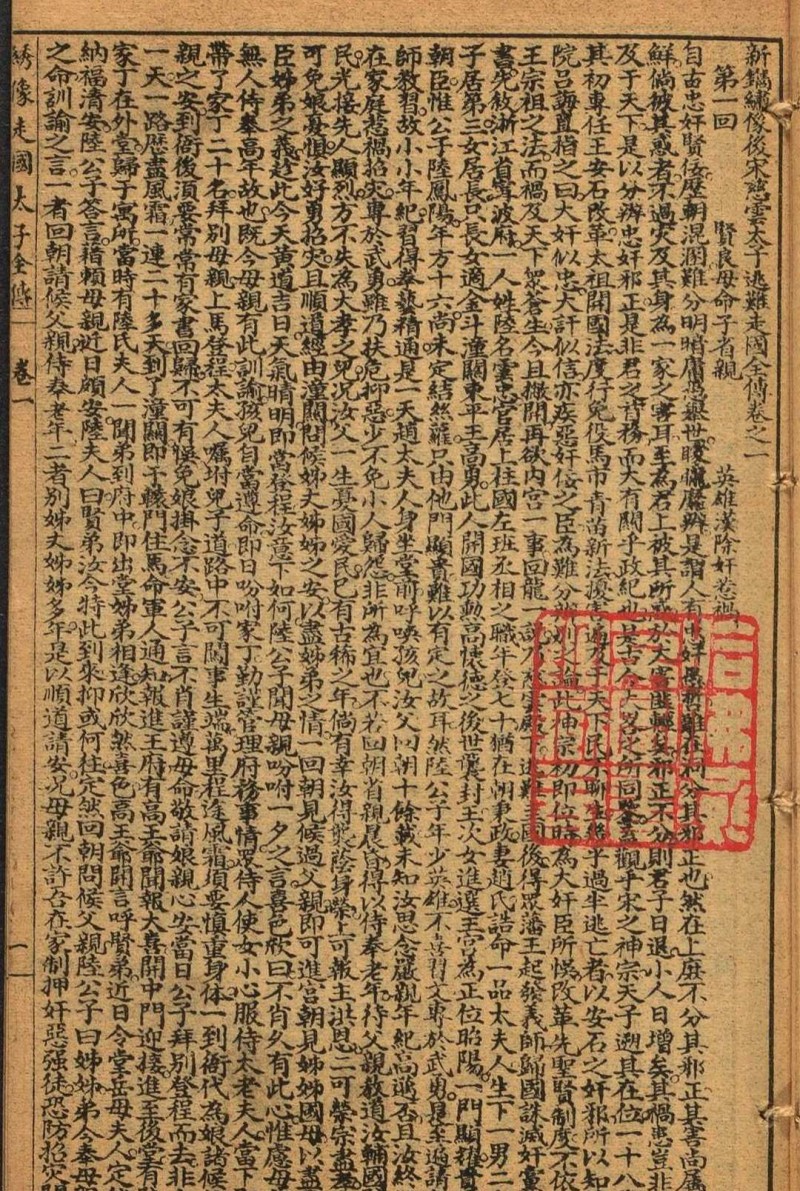 新鐫繡像後宋慈雲太子逃難走國全傳卷之一
第一回 賢良母命子省親 英雄漢除奸惹禍
自古忠奸賢佞歷朝混淆難分明暗庸愚 是謂人有忠奸愚哲難在判分其邪正也然在上麼不分其邪正其害尚屬
鮮倘被其惑者不過災及其身為一家之害耳至為君上被其所惑於大害匪輕矣邪正不分則君子日退小人日增矣其禍患豈非
及于天下是以分辨忠奸邪正是非君之首務而大有關乎政紀也是古今 之所同 蓋觀乎宋之神宗天子遡其在位一十八
其初專任王安石改革太祖開國法度行免役馬市青苗新法擾害遍及于天下民不聊生 乎過半逃亡者以安石之奸邪所以知
院呂誨直指之曰大奸似忠大詐似信亦疾惡奸佞之臣為難分 別之論此神宗初即位時為大奸臣所悞改革先聖賢制度不依
王宗祖之法而禍及天下眾蒼生今且撇開再敘內宮一事回龍 說 慈雲殿下逃難走國後得眾藩王起發義師歸國誅滅奸黨
書先敘浙江省寧波府一人姓陸名雲忠官居上柱國左班丞相之職年登七十猶在朝秉政妻趙氏誥命一品太夫人生下一男二
子居第三女居長只長女適金斗潼關東平王高勇此人開國功勳高懷德之後世襲封王次女進選王宮為正位昭陽一門顯耀貴
朝臣惟公子陸鳳陽年方十六尚未定結絲蘿只由他門顯貴難以有定之故耳然陸公子年少英雄不喜習文專於武勇是至過請
師教習故小小年紀習得拳藝精通是一天趙太夫人身坐堂前呼喚孩兒汝父回朝十餘載未知汝思念嚴親年紀高邁否且汝終
在家庭惹禍招災專於武勇雖乃扶危抑惡少不免小人歸怨非所為宜也不若回朝首親晨昏得以侍奉老年待父親教道汝輔國
民光接先人顯烈方不失為大孝之兒况汝父一生憂國愛民已有古稀之年倘有幸汝得襲蔭身榮上可報主洪恩二可榮宗盡孝
可免娘憂懼汝好勇招災且順道經由潼關問候姊丈姊姊之安以盡姊弟之情一回朝見候過父親即可進宮朝見姊姊國母以盡
臣姊弟之義趁此今天黃道吉日天氣晴明即當登程汝意下如何陸公子聞母親吩咐一夕之言喜色欣曰不肖久有此心惟慮母
無人侍奉高年故也既今母親有此訓諭孩兒自當遵命即日吩咐家丁勤謹管理府務事情眾侍人使女小心服侍太老夫人當下
帶了家丁二十名拜別母親上馬登程太夫人囑咐兒子道路中不可鬧事生端萬里程途風霜須要慎重身体一到衙代為娘諸候
親之安到衙後須要常常有家書回歸不可有悞免娘掛念不安公子言不肖謹遵母命敬請娘親心安當日公子拜別登程而去非
一天一路歷盡風霜一連二十多天到了潼關即于轅門住馬命軍人通知報進王府有高王爺聞報大喜開中門迎接進至後堂有
家丁在外堂歸于寓所當時有陸氏夫人一聞弟到府中即出堂姊弟相逢欣欣然喜色高王爺開言呼賢弟近日令堂岳母夫人定
納福清安陸公子答言藉賴母親近日頗安陸夫人曰賢弟汝今特此到來抑或何往定然回朝問候父親陸公子曰姊姊弟今奉母
之命訓諭之言一者回朝請候父親侍奉老年二者別姊丈姊姊多年是以順道請安况母親不許吾在家制押奸惡强徒恐防招災
繡像走國太子全傳 卷一 一